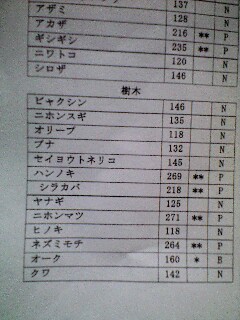 アザミ 137 N
アカザ 128 N
ギシギシ 216 ** P
ニワトコ 235 ** P
シロザ 120 N
146 N
樹木
ビャクシン 146 N
ニホンスギ 135 N
オリーブ 118 N
ブナ 132 N
セイヨウトネリコ 145 N
ハンノキ 269 ** P
シラカバ 218 ** P
ヤナギ 125 N
ニホンマツ 271 ** P
ヒノキ 118 N
ネズミモチ 264 ** P
オーク 160 * B
クワ 142 N